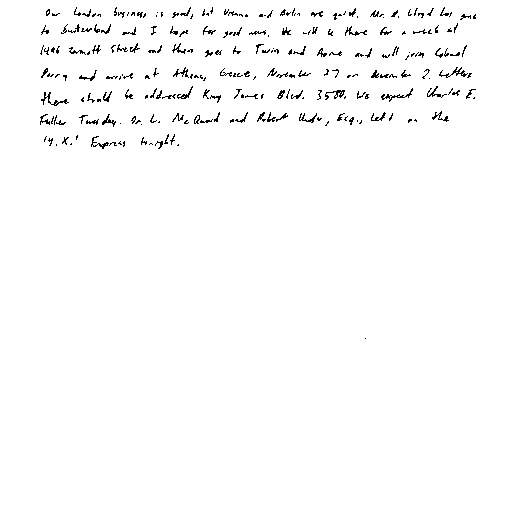 Our London business is good, but Vienna and Berlin are quiet. Mr. D. Lloyd has gone
to Switzerland and I hope for good news. He will be there for a week at
1496 Zermott Street and then goes to Turin and Rome and will join Colonel
Parry and arrive at Athens, Greece, November 27 or December 2. Letters
there should be addressed King James Blvd. 3580. We expect Charles E.
Fuller Tuesday. Dr. L. McQuaid and Robert Unger, Esq., left on the
'Y.X.' Express tonight.